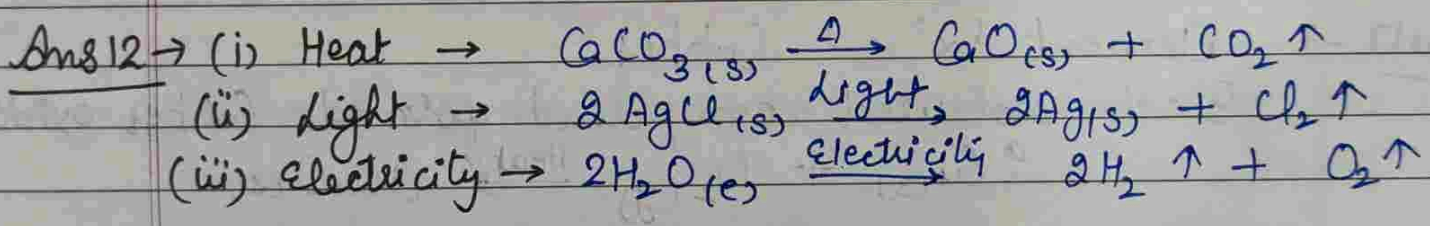 Ans 12 → (i) Heat → CaCO₃(s) —Δ→ CaO(s) + CO₂ ↑
(ii) Light → 2AgCl(s) —Light→ 2Ag(s) + Cl₂ ↑
(iii) Electricity → 2H₂O(l) —Electricity→ 2H₂ ↑ + O₂ ↑